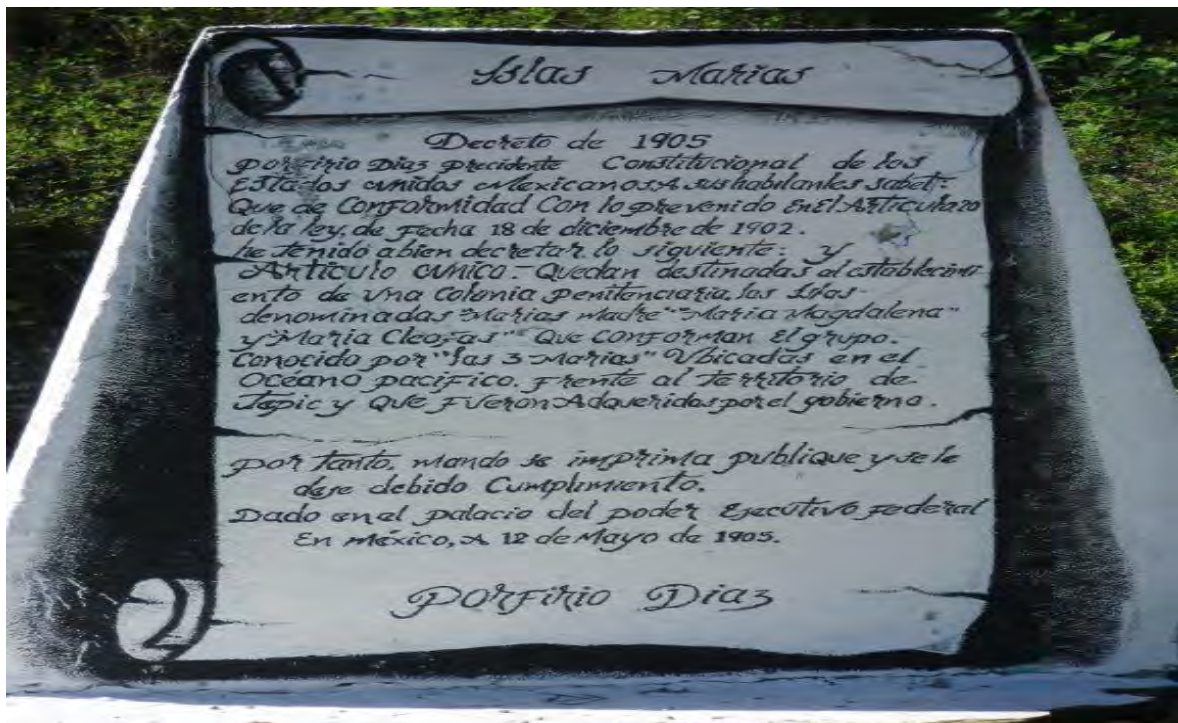 Islas Marias
Decreto de 1905
Porfirio Diaz Precidente Constitucional de los
Estados unidos Mexicanos A sus habitantes sabed:
Que de Conformidad Con lo prevenido En El Articulo 20
de la ley, de Fecha 18 de diciembre de 1902.
he tenido abien decretar lo siguiente: y
Articulo unico.- Quedan destinadas al establecimi
ento de una Colonia penitenciaria, las Islas-
denominadas "Marias madre" "Maria Magdalena"
y "Maria Cleofas" Que Conforman El grupo.
Conocido por "las 3 Marias" Ubicadas en el
Oceano pacifico. Frente al territorio de
Tepic y Que Fueron Adqueridas por el gobierno.
por tanto, mando se imprima publique y se le
dese debido Cumplimiento.
Dado en el palacio del poder Ejecutivo Federal
En mexico, A 12 de Mayo de 1905.
Porfirio Diaz